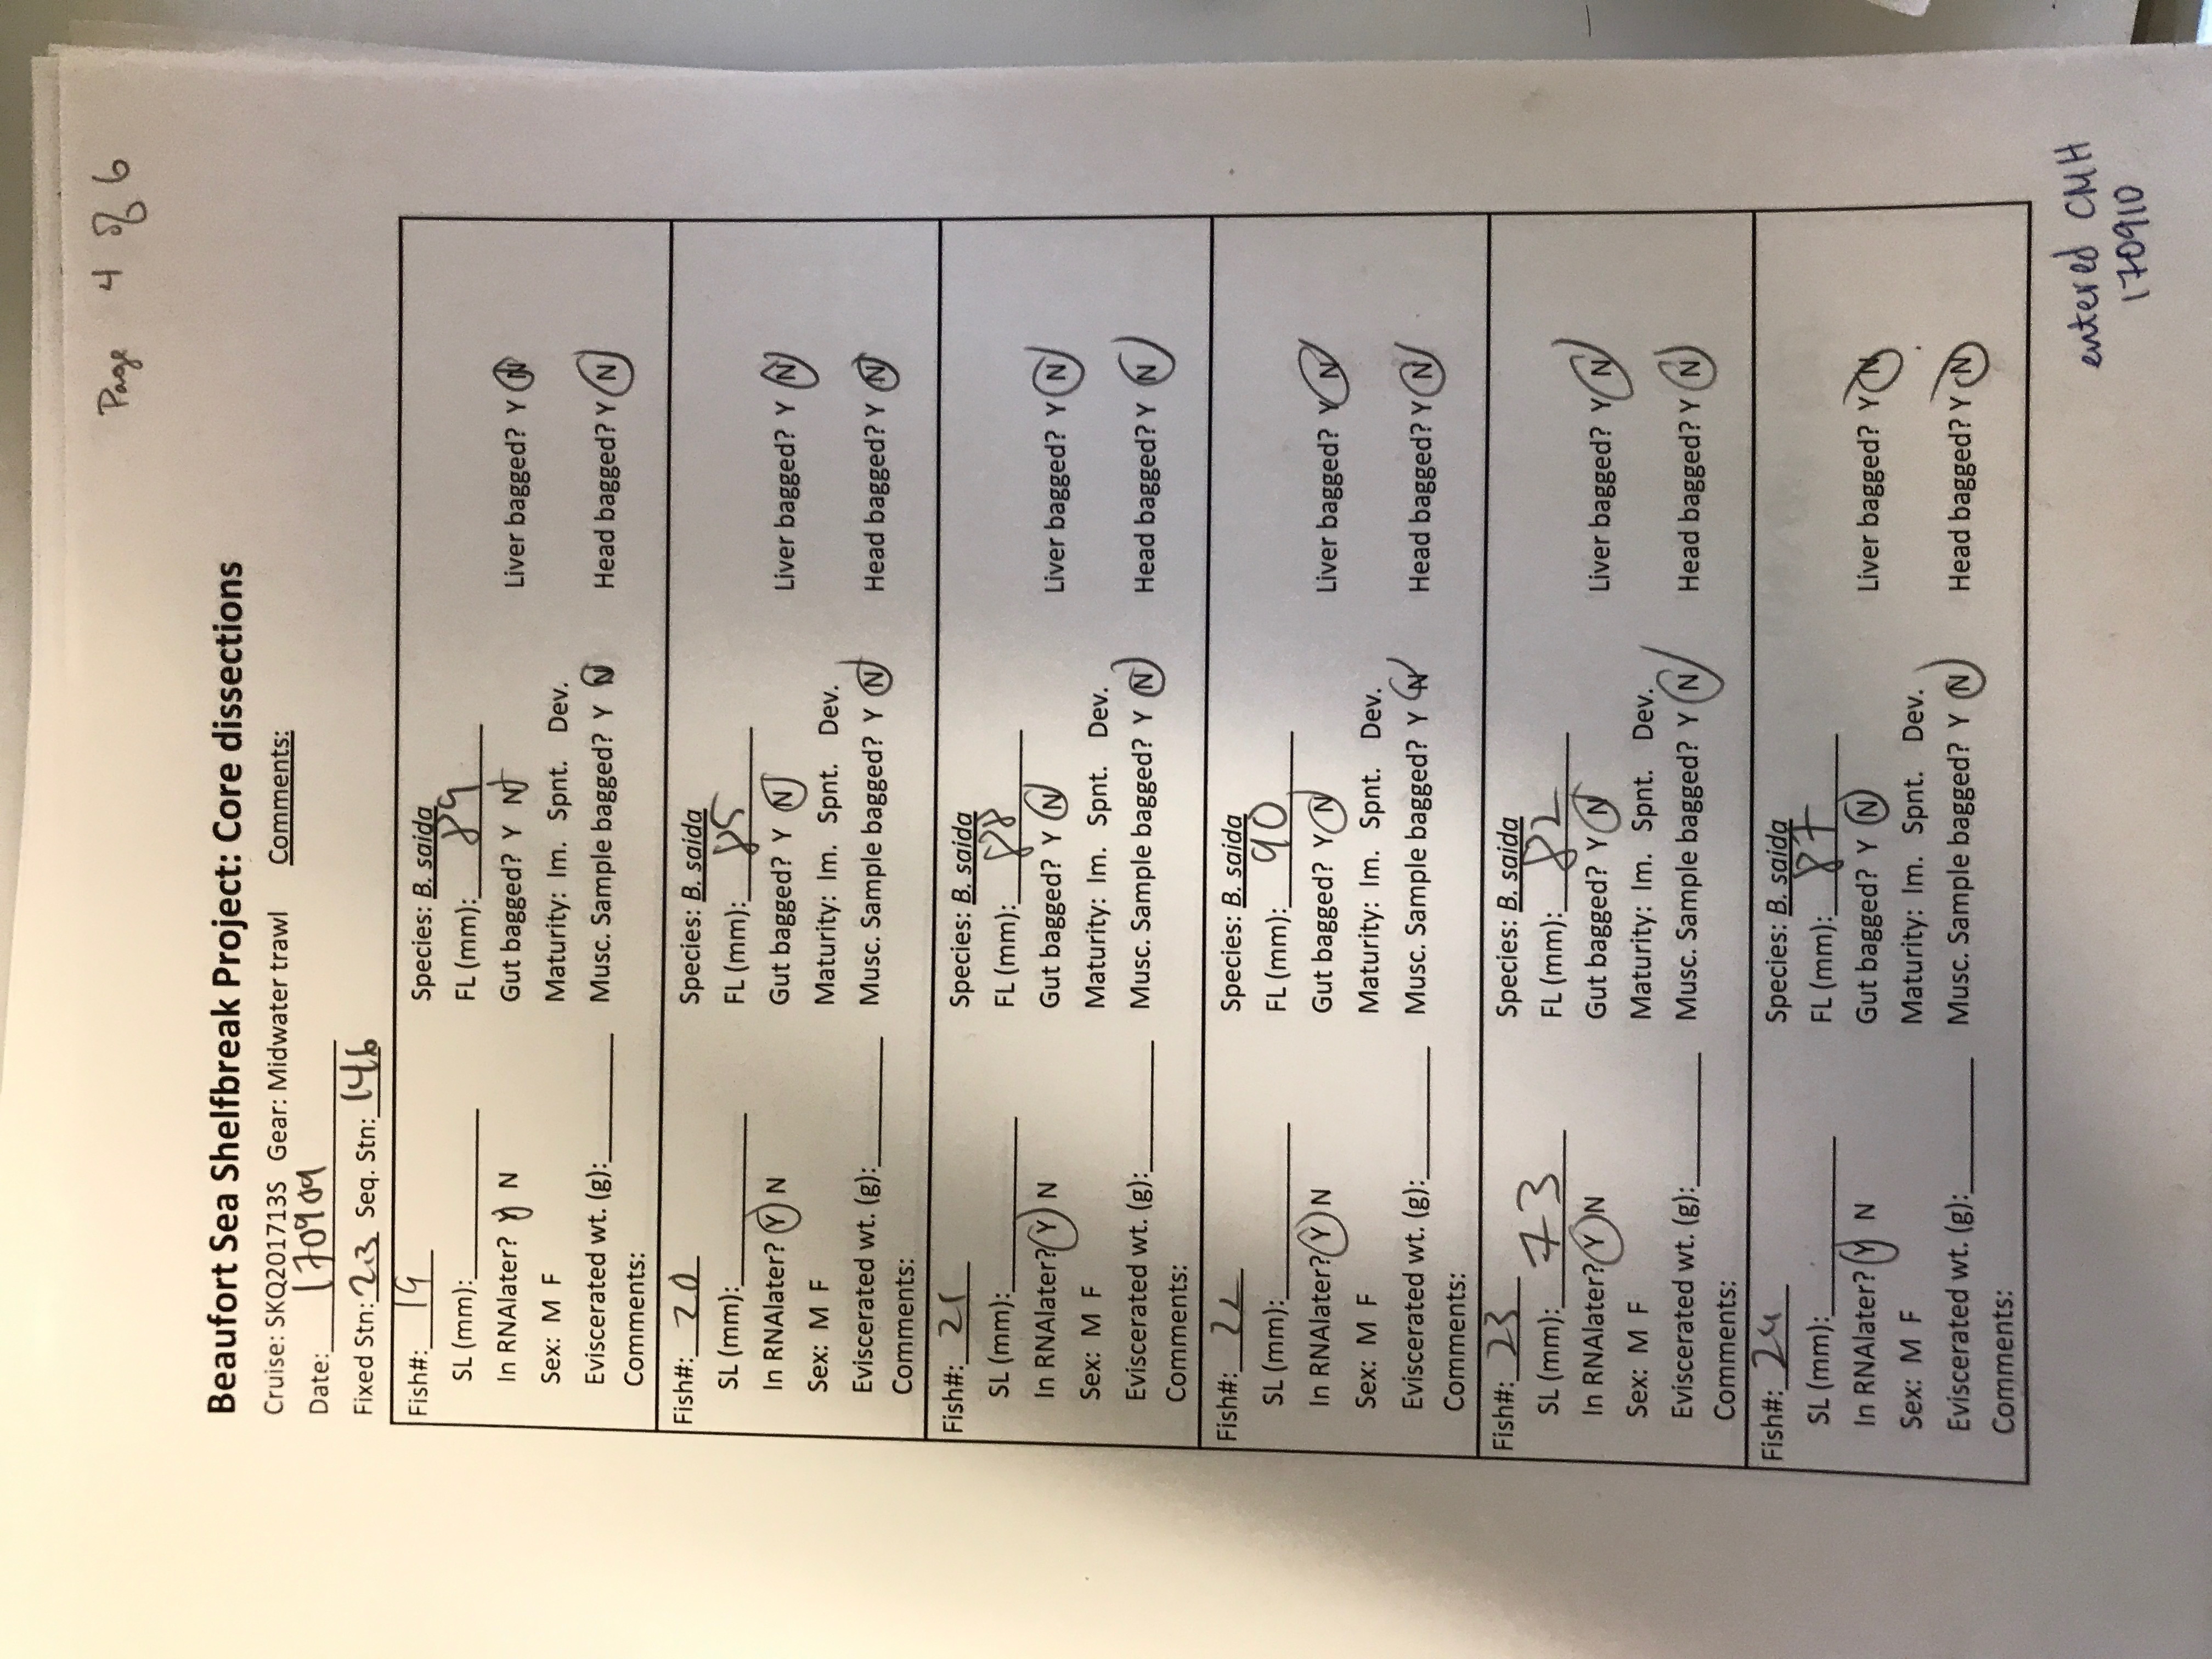 Page 4 of 6
Beaufort Sea Shelfbreak Project: Core dissections
Cruise: SKQ201713S Gear: Midwater trawl Comments:
Date: 170909
Fixed Stn: 23 Seq. Stn: 146
Fish#: 19 Species: B. saida
SL (mm): FL (mm): 89
In RNAlater? Y N Gut bagged? Y N Liver bagged? Y N
Sex: M F Maturity: Im. Spnt. Dev.
Eviscerated wt. (g): Musc. Sample bagged? Y N Head bagged? Y N
Comments:
Fish#: 20 Species: B. saida
SL (mm): FL (mm): 85
In RNAlater? Y N Gut bagged? Y N Liver bagged? Y N
Sex: M F Maturity: Im. Spnt. Dev.
Eviscerated wt. (g): Musc. Sample bagged? Y N Head bagged? Y N
Comments:
Fish#: 21 Species: B. saida
SL (mm): FL (mm): 88
In RNAlater? Y N Gut bagged? Y N Liver bagged? Y N
Sex: M F Maturity: Im. Spnt. Dev.
Eviscerated wt. (g): Musc. Sample bagged? Y N Head bagged? Y N
Comments:
Fish#: 22 Species: B. saida
SL (mm): FL (mm): 90
In RNAlater? Y N Gut bagged? Y N Liver bagged? Y N
Sex: M F Maturity: Im. Spnt. Dev.
Eviscerated wt. (g): Musc. Sample bagged? Y N Head bagged? Y N
Comments:
Fish#: 23 Species: B. saida
SL (mm): 73 FL (mm): 82
In RNAlater? Y N Gut bagged? Y N Liver bagged? Y N
Sex: M F Maturity: Im. Spnt. Dev.
Eviscerated wt. (g): Musc. Sample bagged? Y N Head bagged? Y N
Comments:
Fish#: 24 Species: B. saida
SL (mm): FL (mm): 87
In RNAlater? Y N Gut bagged? Y N Liver bagged? Y N
Sex: M F Maturity: Im. Spnt. Dev.
Eviscerated wt. (g): Musc. Sample bagged? Y N Head bagged? Y N
Comments:
entered CMH
170910